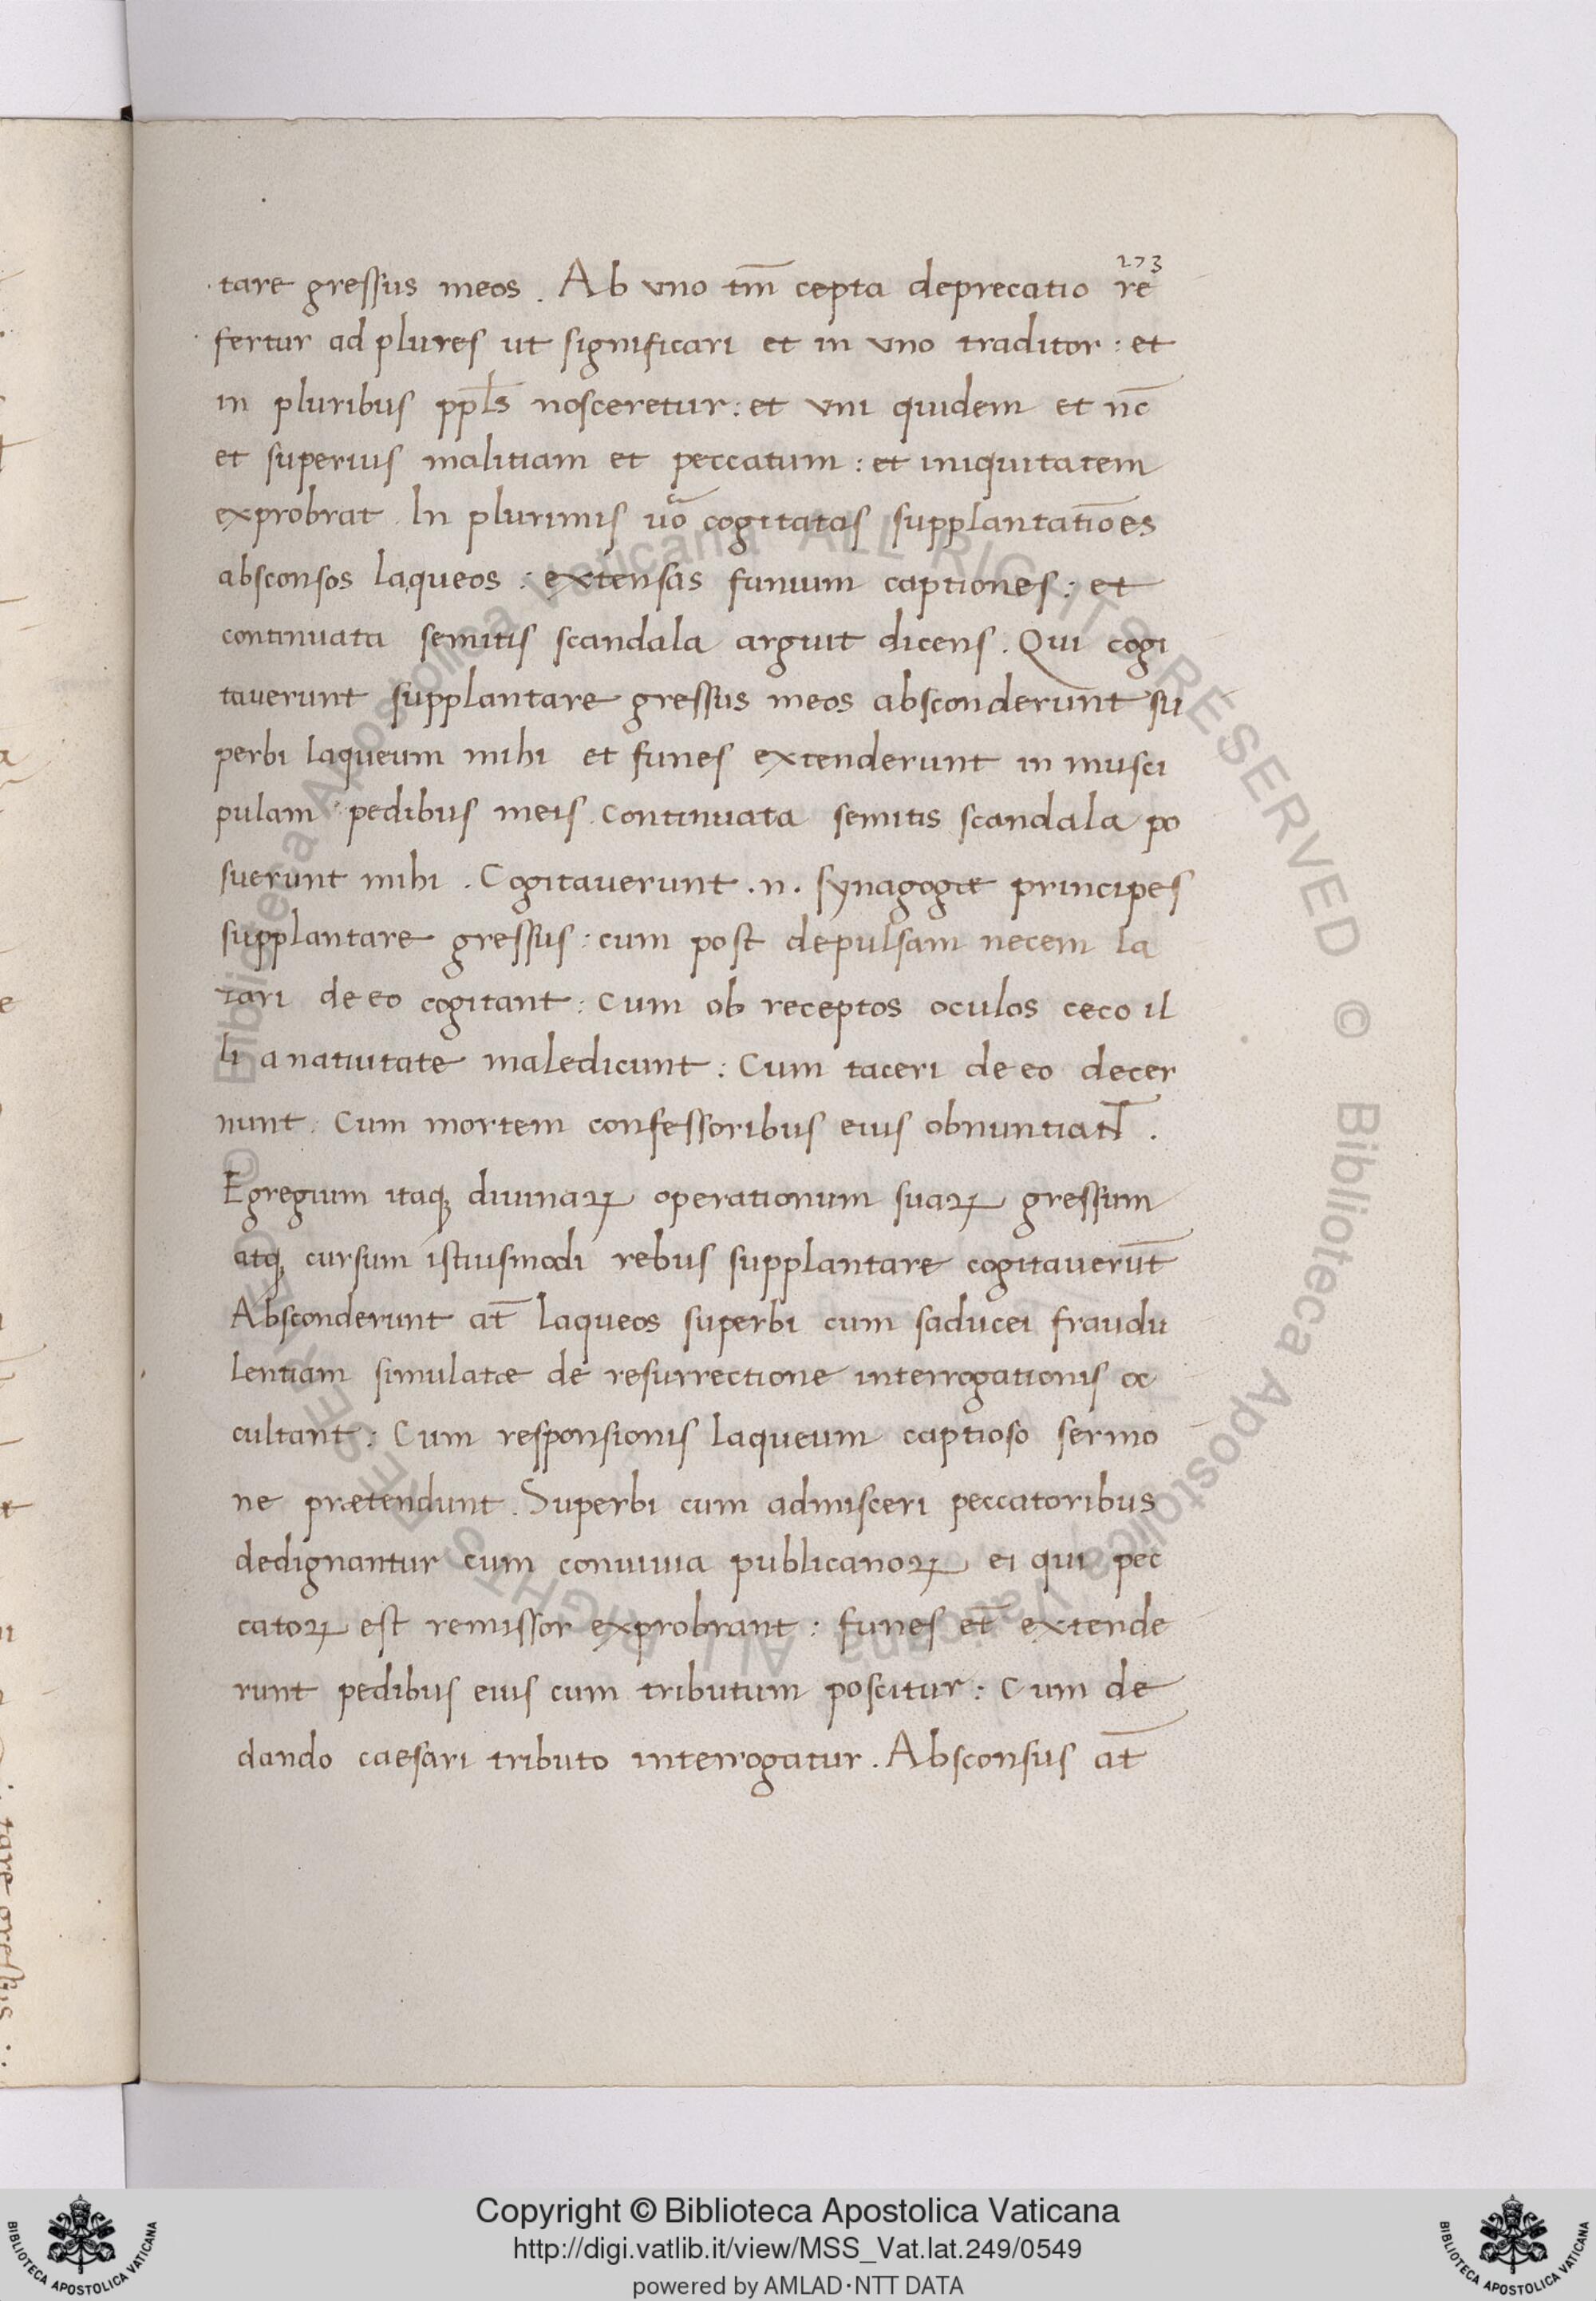 273
tare gressus meos. Ab uno tm̄ cepta deprecatio re
fertur ad plures ut significari et in uno traditor: et
in pluribus ppl̄s nosceretur: et uni quidem et nc̄
et superius malitiam et peccatum: et iniquitatem
exprobrat. In plurimis uō cogitatas supplantatiōes
absconsos laqueos: extensas funium captiones: et
continuata semitis scandala arguit dicens. Qui cogi
tauerunt supplantare gressus meos absconderunt su
perbi laqueum mihi et funes extenderunt in musci
pulam pedibus meis. Continuata semitis scandala po
suerunt mihi. Cogitauerunt .n. synagogæ principes
supplantare gressus: cum post depulsam necem la
zari de eo cogitant: Cum ob receptos oculos ceco il
li a natiuitate maledicunt: Cum taceri de eo decer
nunt. Cum mortem confessoribus eius obnuntiant̄.
Egregium itaqꝫ diuinaꝝ operationum suaꝝ gressum
atqꝫ cursum istiusmodi rebus supplantare cogitauerūt
Absconderunt at̄ laqueos superbi cum saducei fraudu
lentiam simulatæ de resurrectione interrogationis oc
cultant: Cum responsionis laqueum captioso sermo
ne prætendunt. Superbi cum admisceri peccatoribus
dedignantur cum conuiuia publicanoꝝ ei qui pec
catoꝝ est remissor exprobrant: funes et̄ extende
runt pedibus eius cum tributum poscitur: Cum de
dando caesari tributo interrogatur. Absconsus at̄
tare gressus
© Biblioteca Apostolica Vaticana ALL RIGHTS RESERVED
© Biblioteca Apostolica Vaticana ALL RIGHTS RESERVED
Copyright © Biblioteca Apostolica Vaticana
http://digi.vatlib.it/view/MSS_Vat.lat.249/0549
powered by AMLAD·NTT DATA
BIBLIOTECA APOSTOLICA VATICANA
BIBLIOTECA APOSTOLICA VATICANA